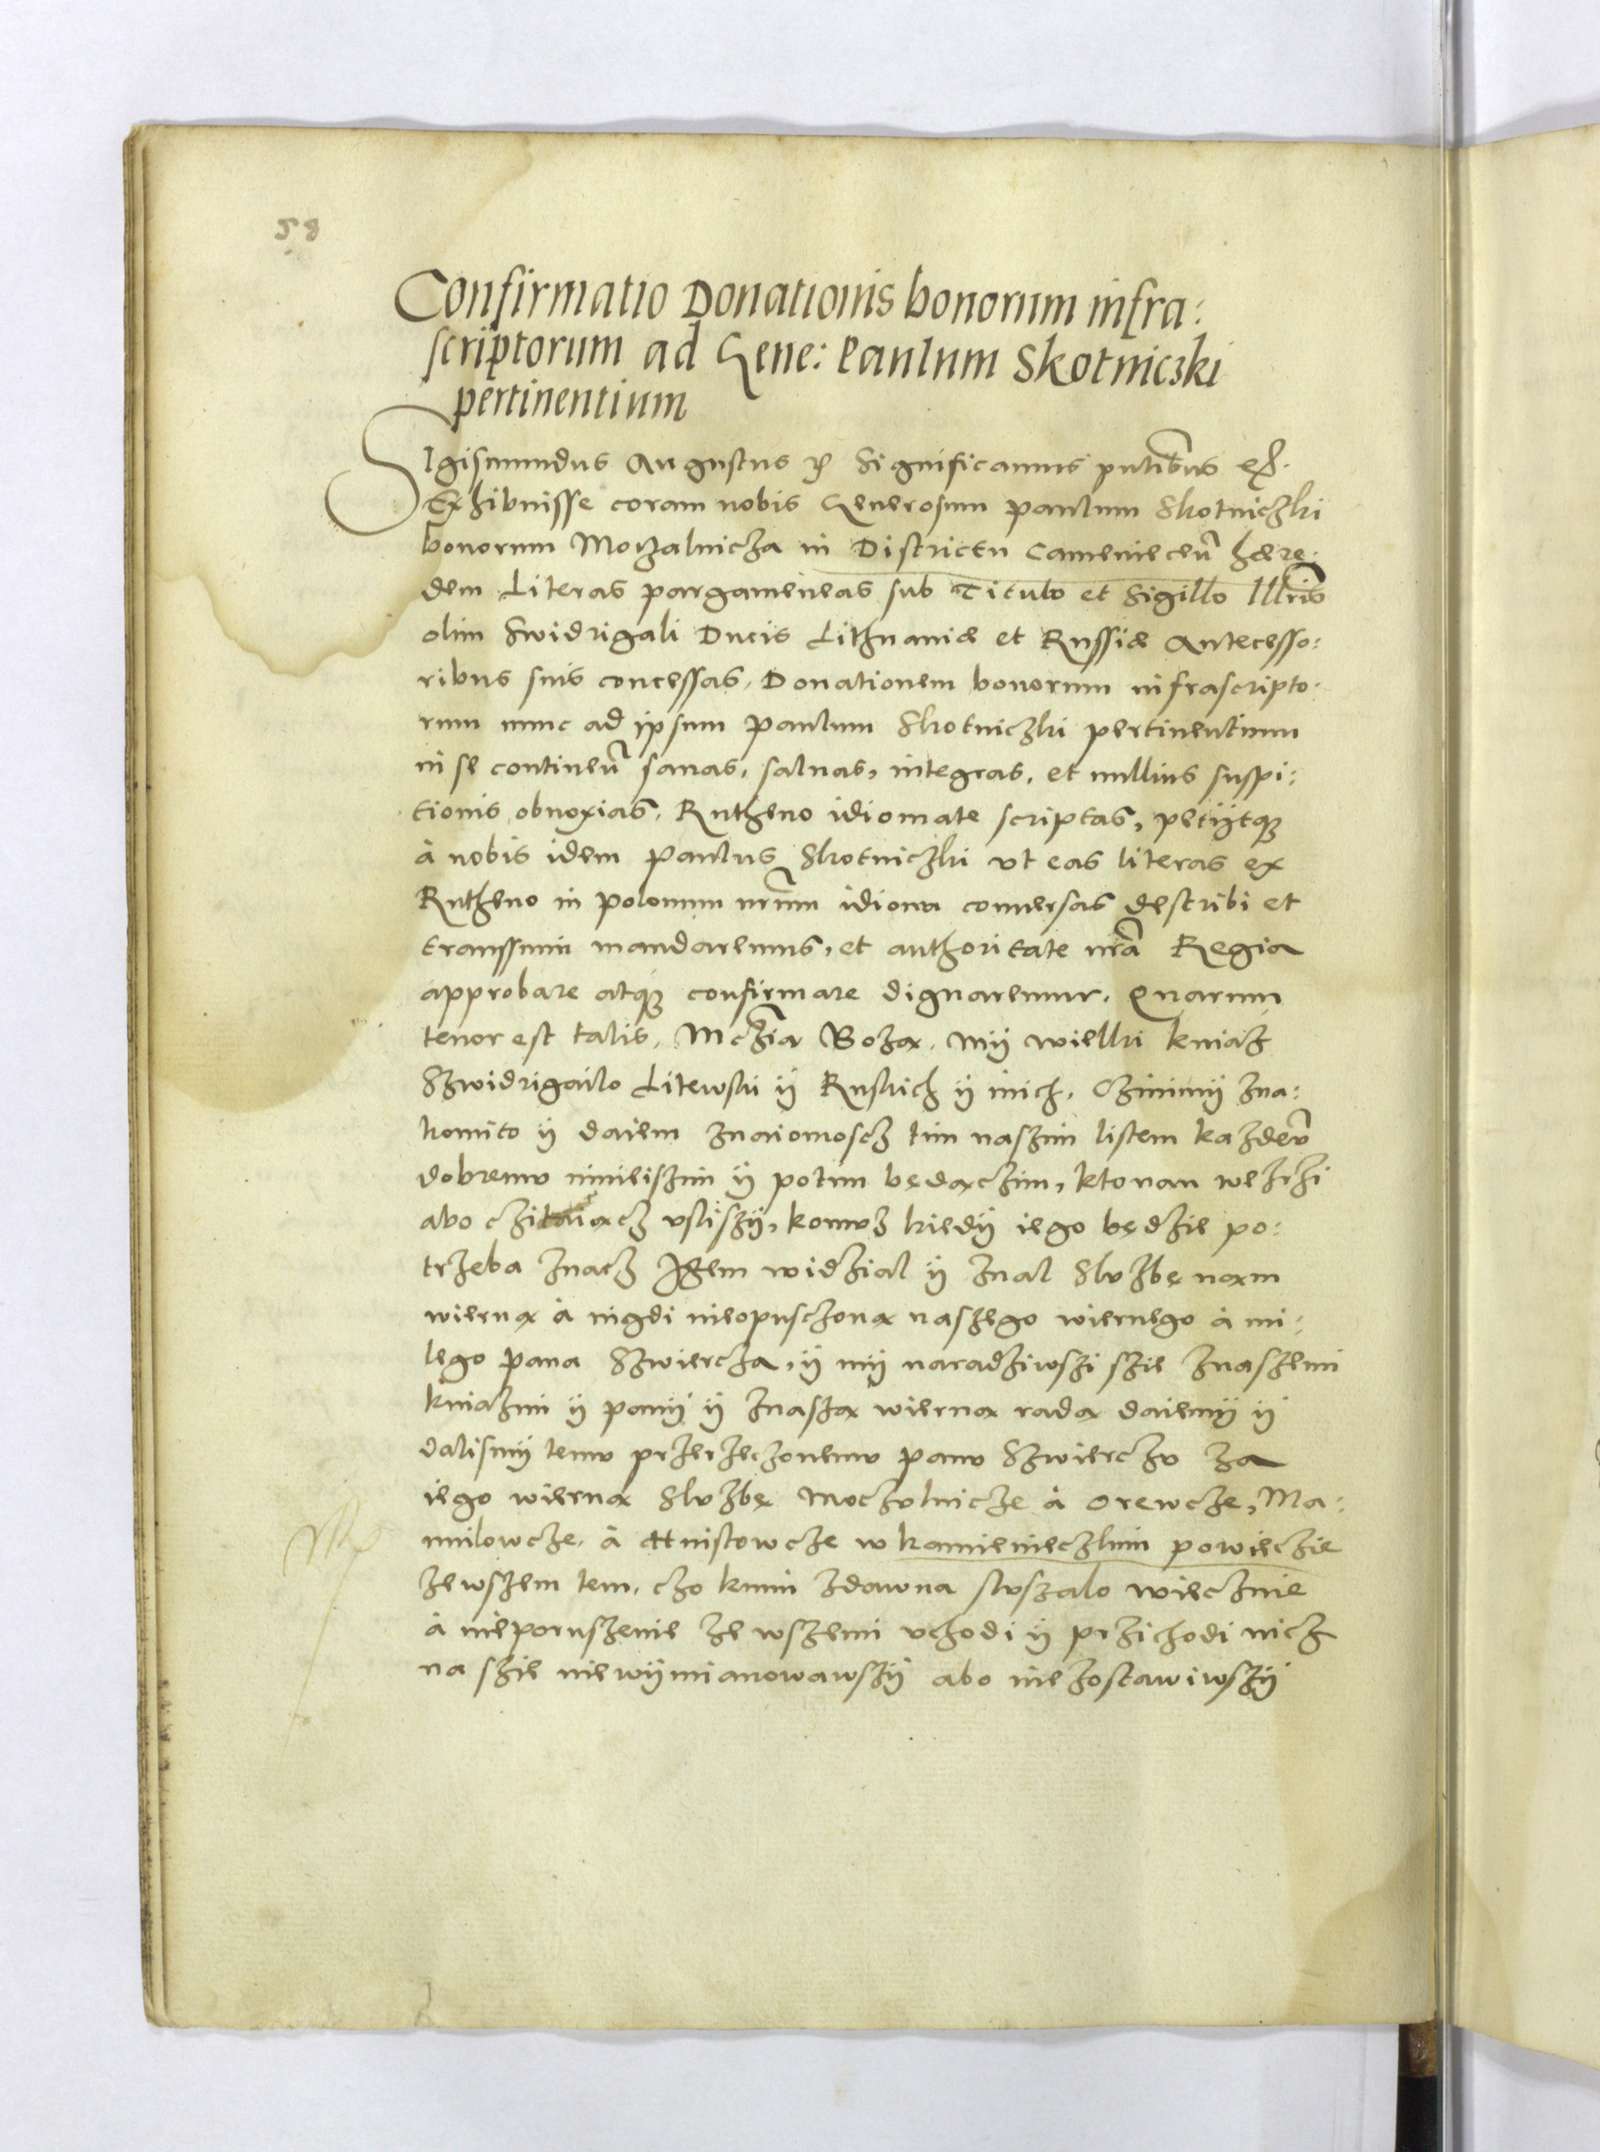 58
Confirmatio Donationis bonorum infra:
scriptorum ad Gene: Paulum Skotniczki
pertinentium
SIgismundus Augustus Significamus
Exhibuisse coram nobis Generosum Paulum Skotniczki
bonorum Moczalnicza in Districtu Cameniceñ hære:
dem Literas pargameneas sub Titulo et Sigillo Illris
olim Swidrigali Ducis Lithuaniæ et Russiæ Antecesso:
ribus suis concessas, Donationem bonorum infrascripto:
rum nunc ad ipsum Paulum Skotniczki pertinentium
in se contineñ sanas, saluas, integras, et nullius suspi:
tionis obnoxias, Rutheno idiomate scriptas, petiitq
à nobis idem Paulus Skotniczki vt eas literas ex
Rutheno in polonum nrum idioma conuersas describi et
transsumi mandaremus, et authoritate nra Regia
approbare atq confirmare dignaremur. Quarum
tenor est talis. Mczia Boza. mÿ wielki kniaz
Szwidrigailo Litewski ÿ Ruskich ÿ inich. Czinimÿ zna:
komito ÿ daiem znaiomoscz tim naszim listem kazdeo
dobremu ninieiszim ÿ potim będączim, kto nan wezrzi
abo vsliszÿ, komuz kiedÿ iego będzie po:
trzeba znacz Izem widzial ÿ znal Sluzbę nam
wierną à nigdi nieopusczoną naszego wiernego à mi:
lego pana Szwiercza, ÿ mÿ naradziwszi szie znaszemi
kniazmi ÿ panÿ ÿ znaszą wierną radą daiemÿ ÿ
dalismÿ temu przerzeczonemu panu Szwierczu za
iego wierną Sluzbę Moczulnicze à Orewcze, Ma:
nilowcze, à Hnistowcze w kamienieczkim powieczie
zewszem tem, czo knim zdawna sluszalo wiecznie
à nieporuszenie ze wszemi vchodi ÿ przichodi nicz
na szie niewÿmianowawszÿ abo niezostawiwszÿ